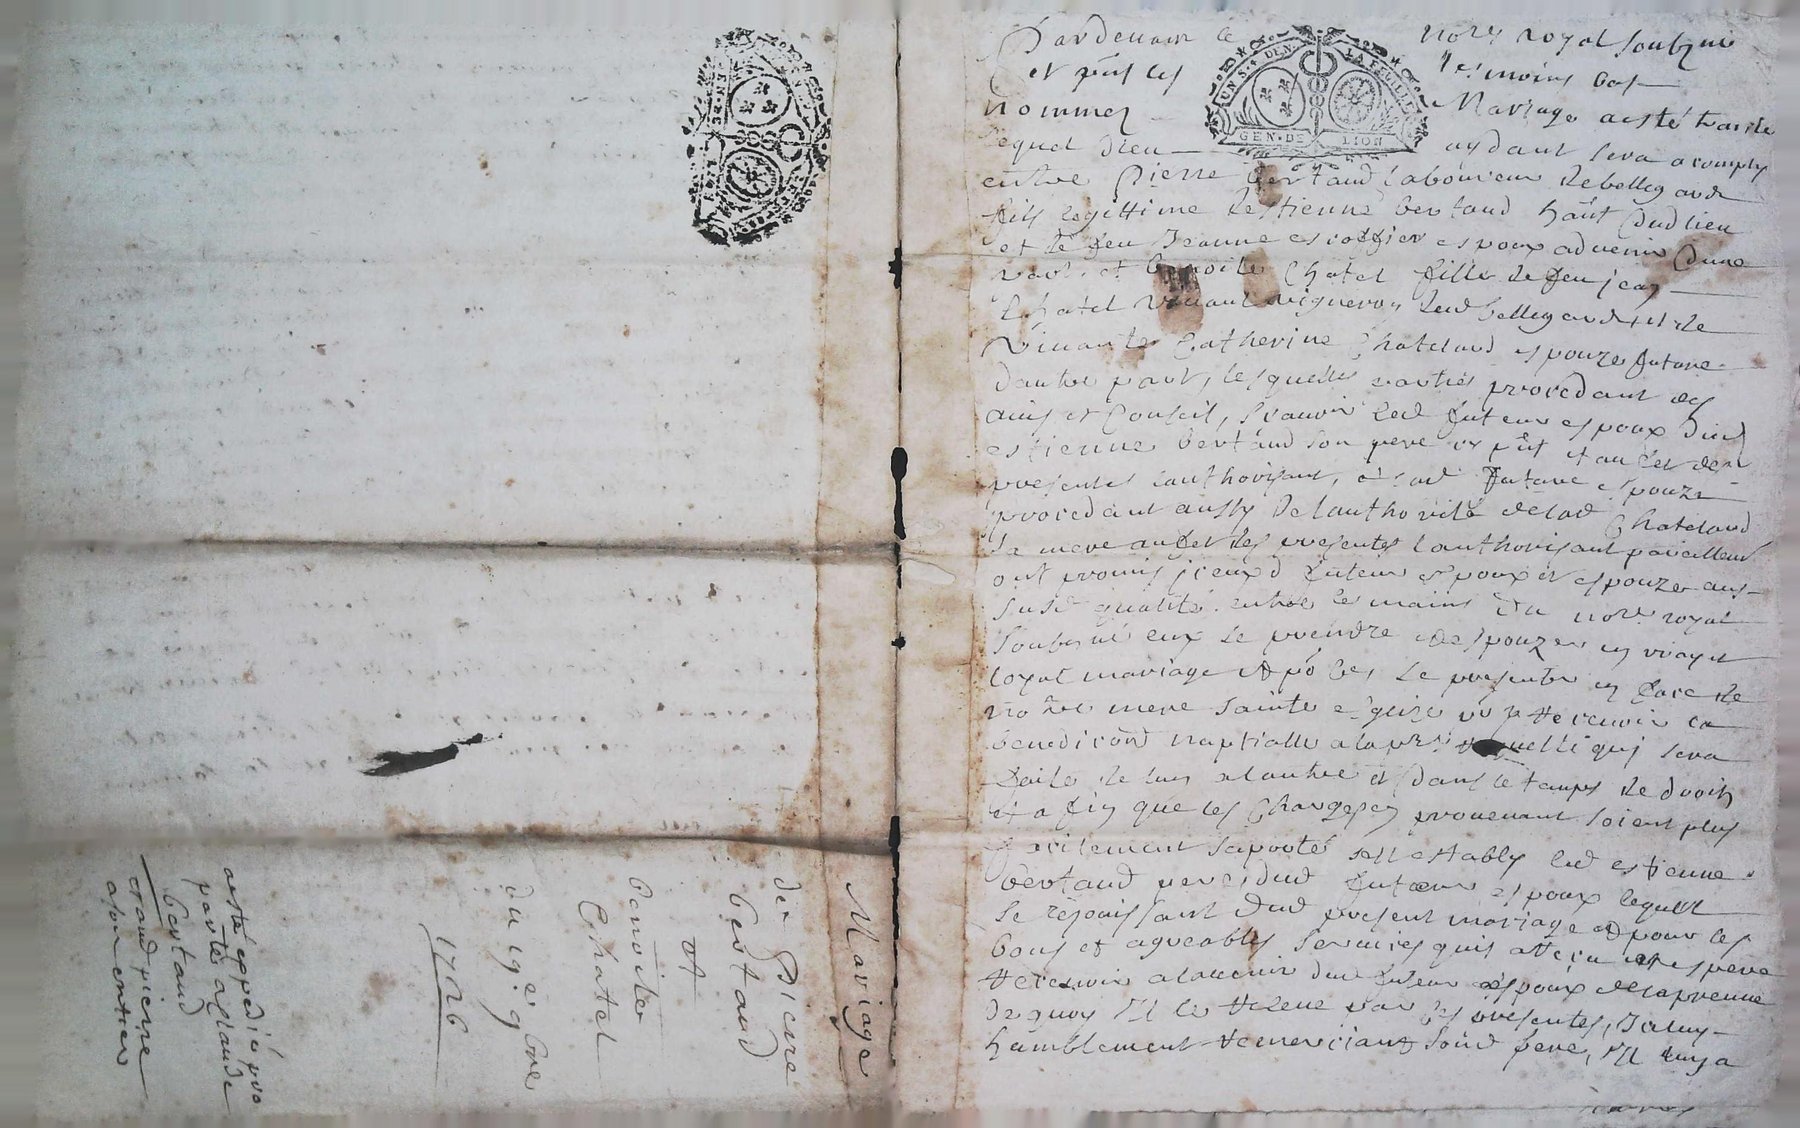 Pardevant le nore royal soubzne
et pñt les tesmoins bas
nommez Mariage a esté traité
lequel Dieu aydant sera acomply
entre Pierre Bertaud laboureur de bellegarde
fils legittime destienne bertaud hañt dud lieu
et de feu Jeanne escoffier espoux advenir dune
part, et benoite Chatel fille de feu jean
Chatel vivant vigneron dud bellegarde et de
vivante Catherine Chatelard espouze future
dautre part, lesquelles parties procedant des
avis et Conseil, scavoir led futeur espoux dud
estienne bertaud son pere
presentes lauthorisant, et lad future espouze
procedant aussy de lauthorité de lad Chatelard
sa mere au fet des presentes lauthorisant pareillemt
ont promis iceux d futeur espoux et espouze aux
susd qualité entre les mains du nore royal
soubzné eux se prendre et espouzer en vray et
loyal mariage et po ce, se presenter en face de
nore mere sainte eglize po y recevoir la
benedicõn nuptialle a la pre requelle quj sera
faite de lun a lautre et dans le temps de droit
et afin que les Charges en provenant soient plus
facilement suporté sest estably led estienne
bertaud pere dud futeur espoux lequel
se rejouissant dud present mariage et pour les
bons et agreables services quil a receu et espere
recevoir a ladvenir dud futeur espoux de la preuve
de quoy Il le releve par ces presentes, Jceluy
humblement remerciant soñd pere, Il luy a
UN S. DEN. LA FEUILLE
GEN. DE LION
Mariage
de Pierre
bertaud
et
benoite
Chatel
du 19e 9bre
1726
a esté expedié pro
parte a Claude
bertaud
grand pierre
a son entier